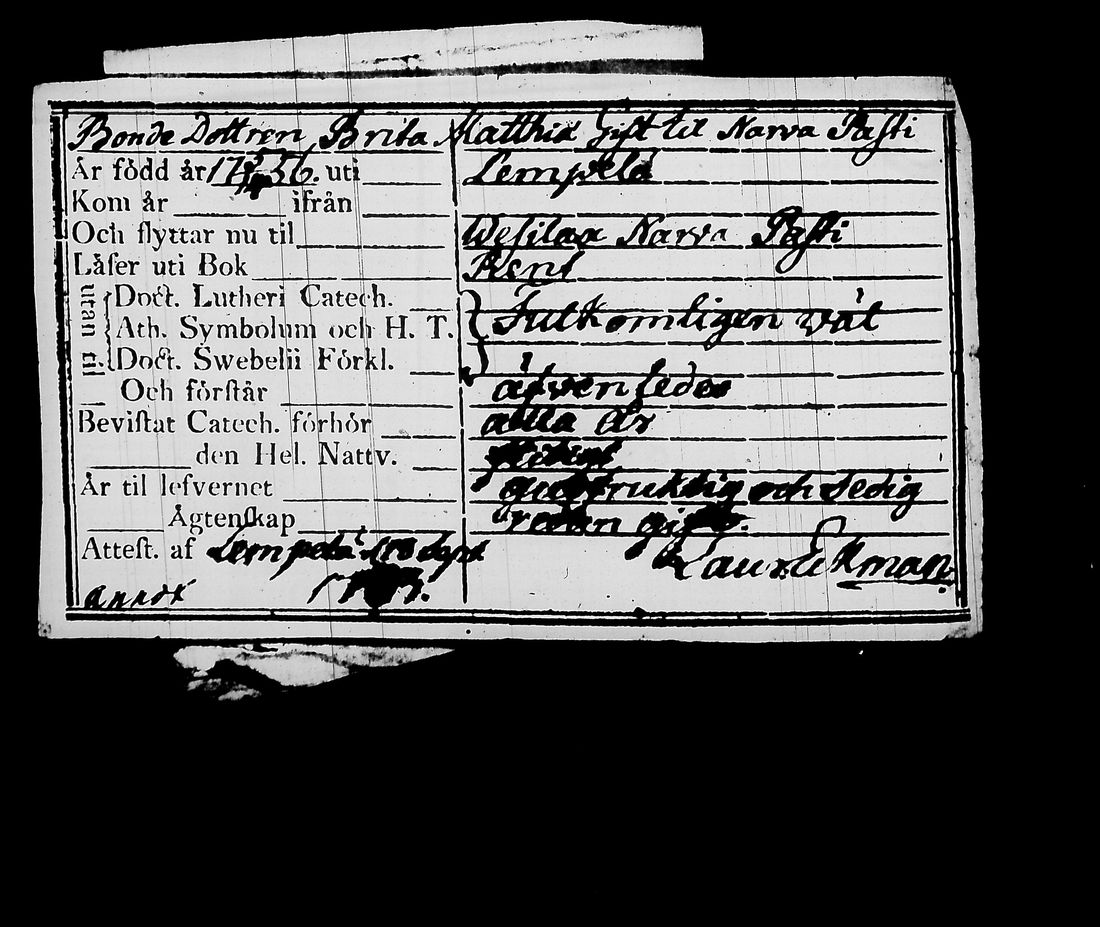 Bonde Dottren Brita Matthid Gift til Narva Pasti
Är född år 17 36. uti Lempelä
Kom år ifrån
Och flyttar nu til Wesilax Narva Pasti
Låſer uti Bok Rent
utan til Doct. Lutheri Catech.
Ath. Symbolum och H. T. Fulkomligen väl
Doct. Swebelii Förkl.
Och förſtår äfven ledes
Beviſtat Catech. förhör alla år
den Hel. Nattv. flitigt
Är til lefvernet gudfruktig och sedig
Ägtenſkap redan gift.
Atteſt. af Lempelä
Laur: Ekman.